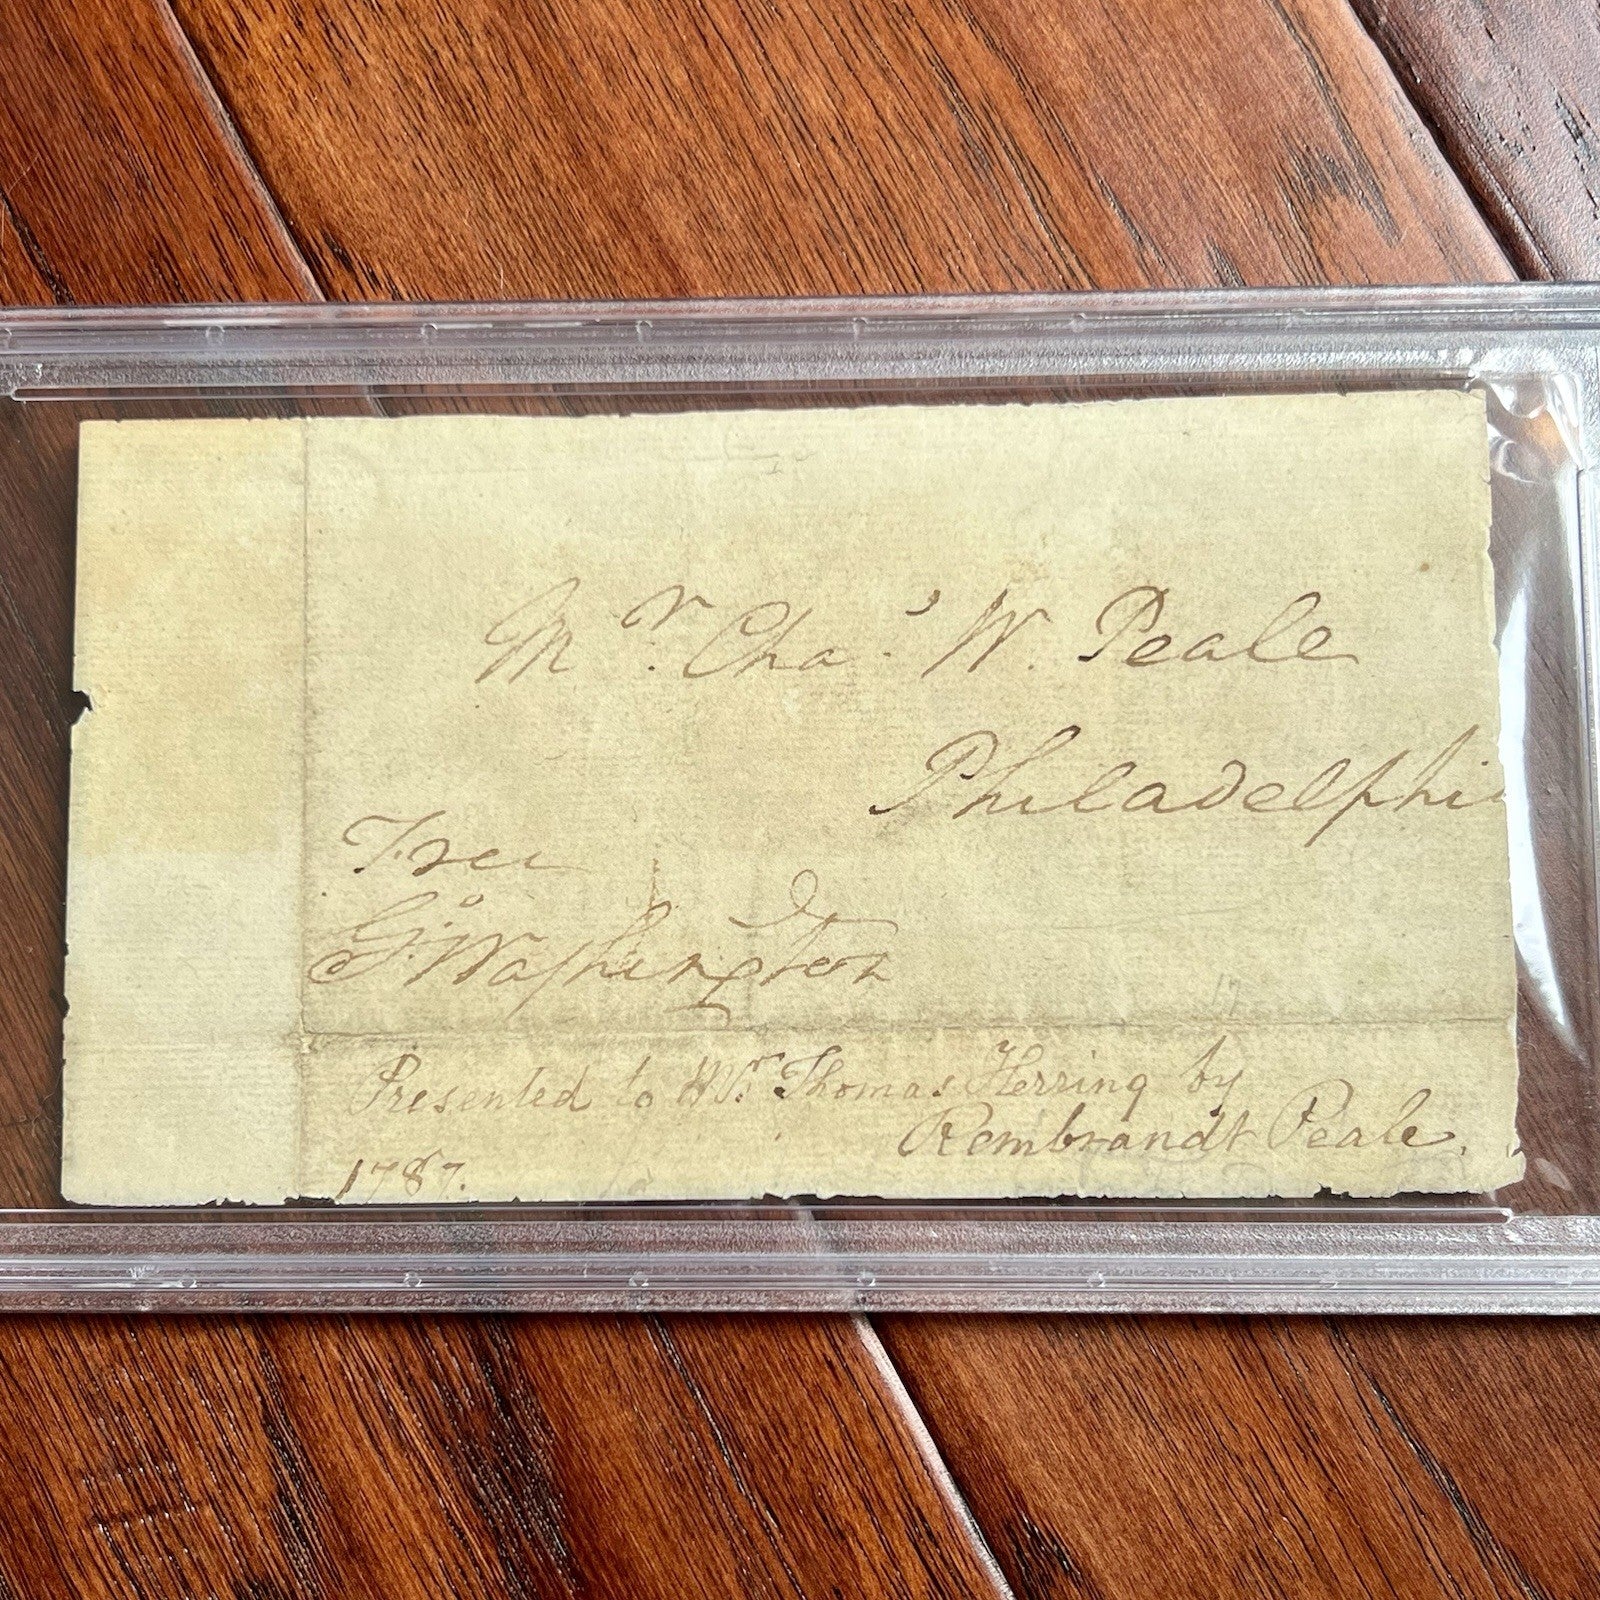 Mr. Chas. W. Peale
Philadelphi
Free
Go. Washington
17
Presented to Mr. Thomas Herring by
Rembrandt Peale.
1787.